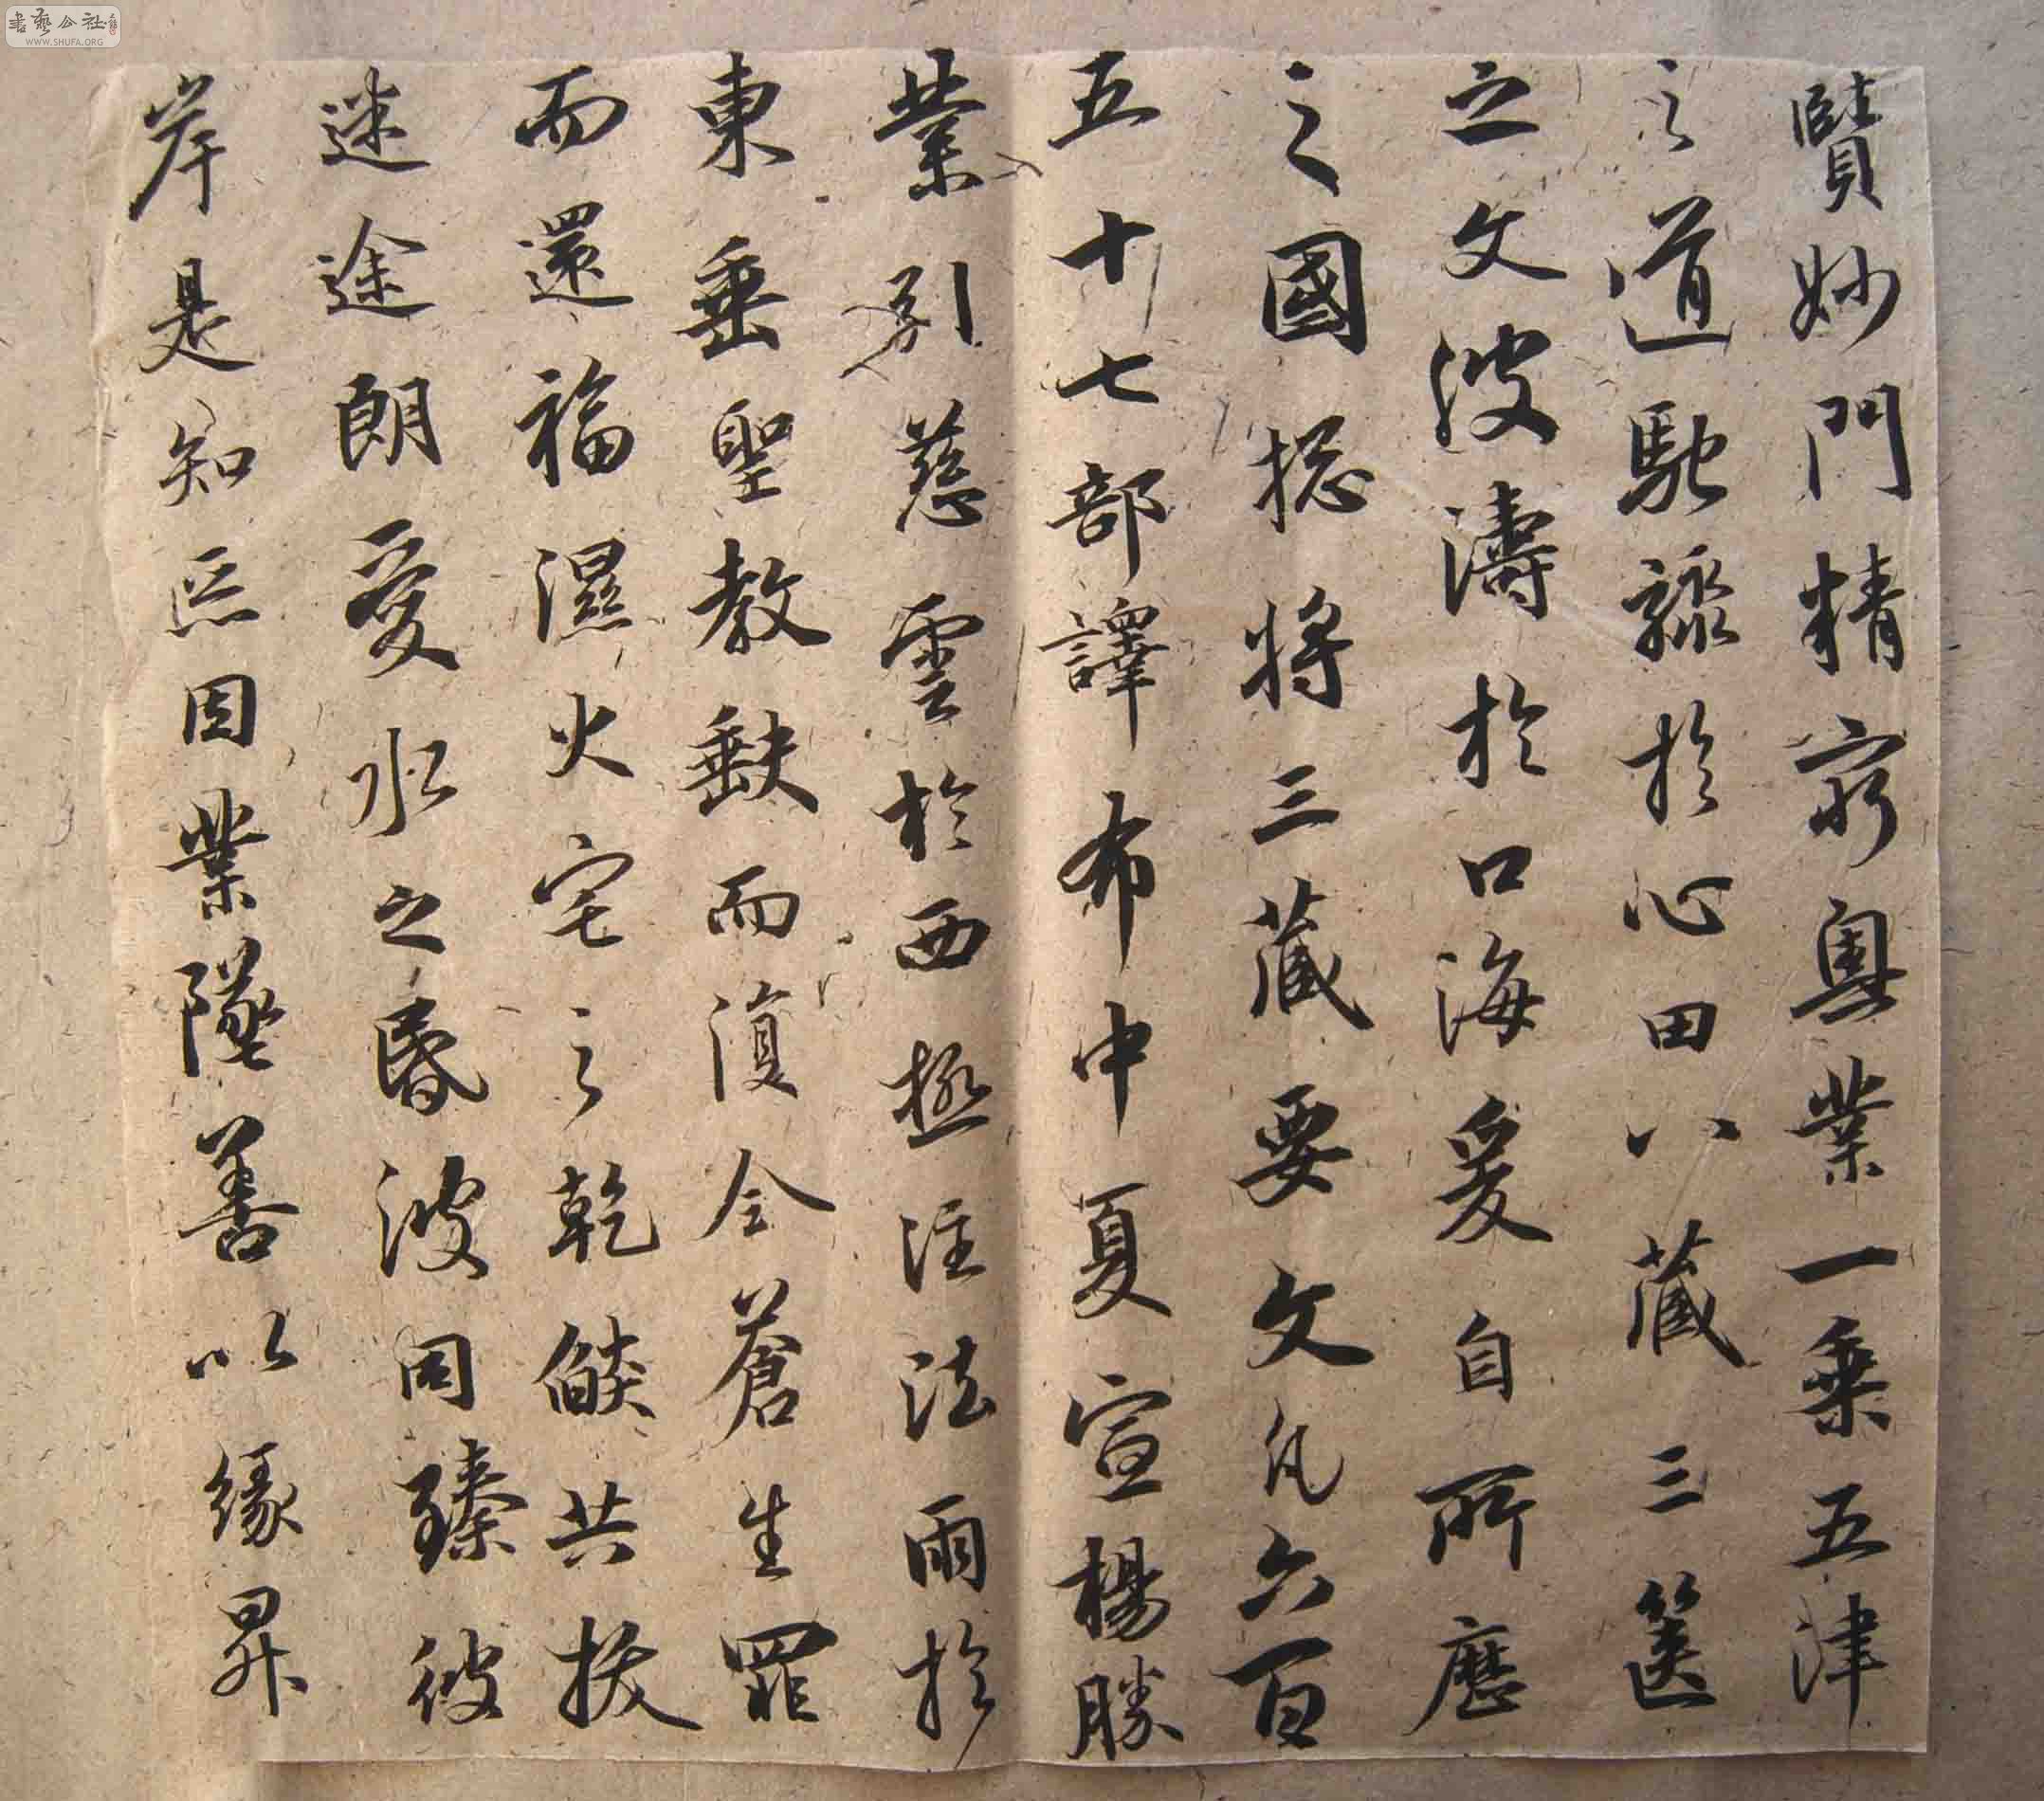 賢妙門精窮奧業一乘五津
之道馳驟於心田八藏三篋
之文波濤於口海爰自所歷
之國揔將三藏要文凡六百
五十七部譯布中夏宣楊勝
業引慈雲於西極注法雨於
東垂聖教缺而復全蒼生罪
而還福濕火宅之乾燄共拔
迷途朗愛水之昏波同臻彼
岸是知惡因業墜善以緣昇
書藝公社
WWW.SHUFA.ORG